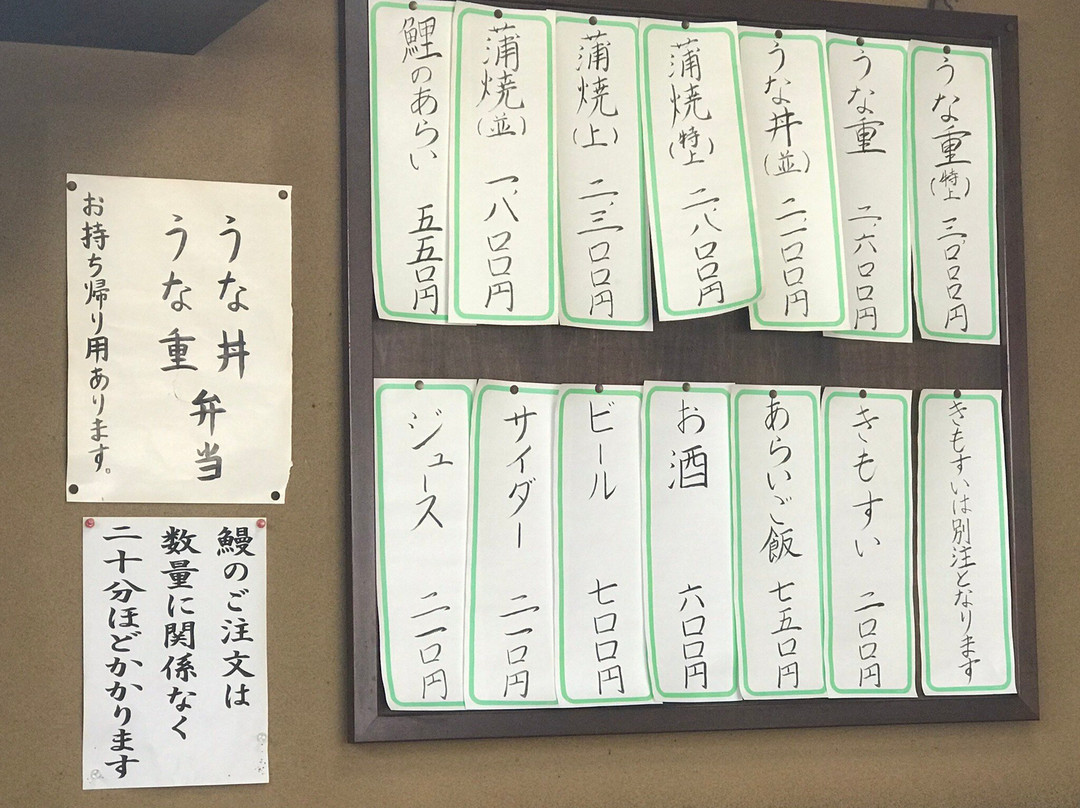 うな重(特上) 三、〇〇〇円
うな重 二、六〇〇円
うな丼(並) 二、一〇〇円
蒲焼(特上) 二、八〇〇円
蒲焼(上) 二、三〇〇円
蒲焼(並) 一、八〇〇円
鯉のあらい 五五〇円
きもすいは別注となります
きもすい 二〇〇円
あらいご飯 七五〇円
お酒 六〇〇円
ビール 七〇〇円
サイダー 二一〇円
ジュース 二一〇円
うな丼
うな重
弁当
お持ち帰り用あります。
鰻のご注文は
数量に関係なく
二十分ほどかかります